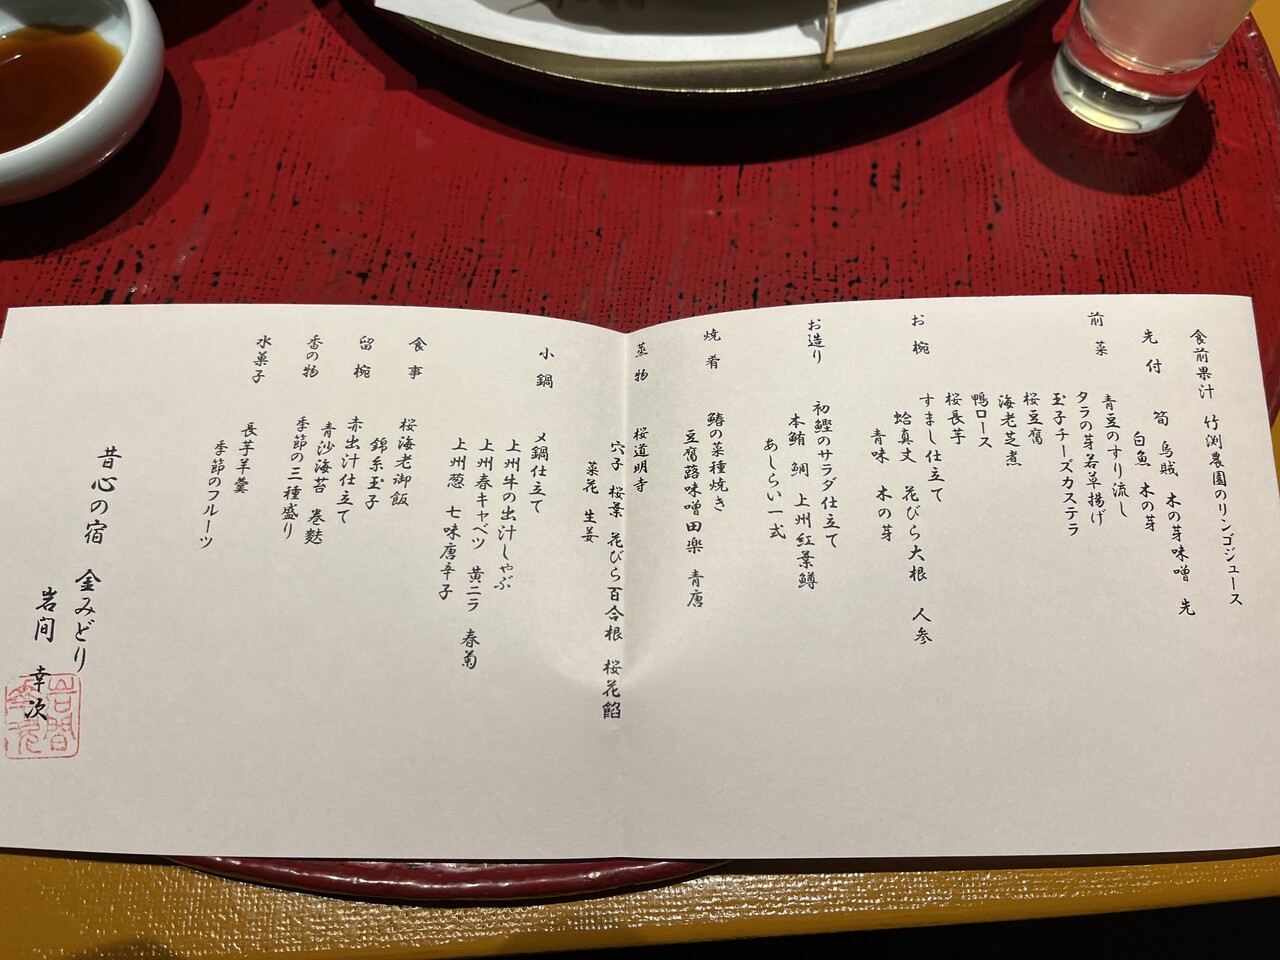 食前果汁　竹渕農園のリンゴジュース
先付　筍　烏賊　木の芽味噌　先
白魚　木の芽
前菜　青豆のすり流し
タラの芽若草揚げ
玉子チーズカステラ
桜豆腐
海老芝煮
鴨ロース
桜長芋
お椀　すまし仕立て
蛤真丈　花びら大根　人参
青味　木の芽
お造り　初鰹のサラダ仕立て
本鮪　鯛　上州紅葉鱒
あしらい一式
焼肴　鰆の菜種焼き
豆腐蕗味噌田楽　青唐
蒸物　桜道明寺
穴子　桜葉　花びら百合根　桜花餡
菜花　生姜
小鍋　〆鍋仕立て
上州牛の出汁しゃぶ
上州春キャベツ　黄ニラ　春菊
上州葱　七味唐辛子
食事　桜海老御飯
錦糸玉子
留椀　赤出汁仕立て
青沙海苔　巻麩
香の物　季節の三種盛り
水菓子　長芋羊羹
季節のフルーツ
昔心の宿　金みどり
岩间　幸次
岩間
幸次